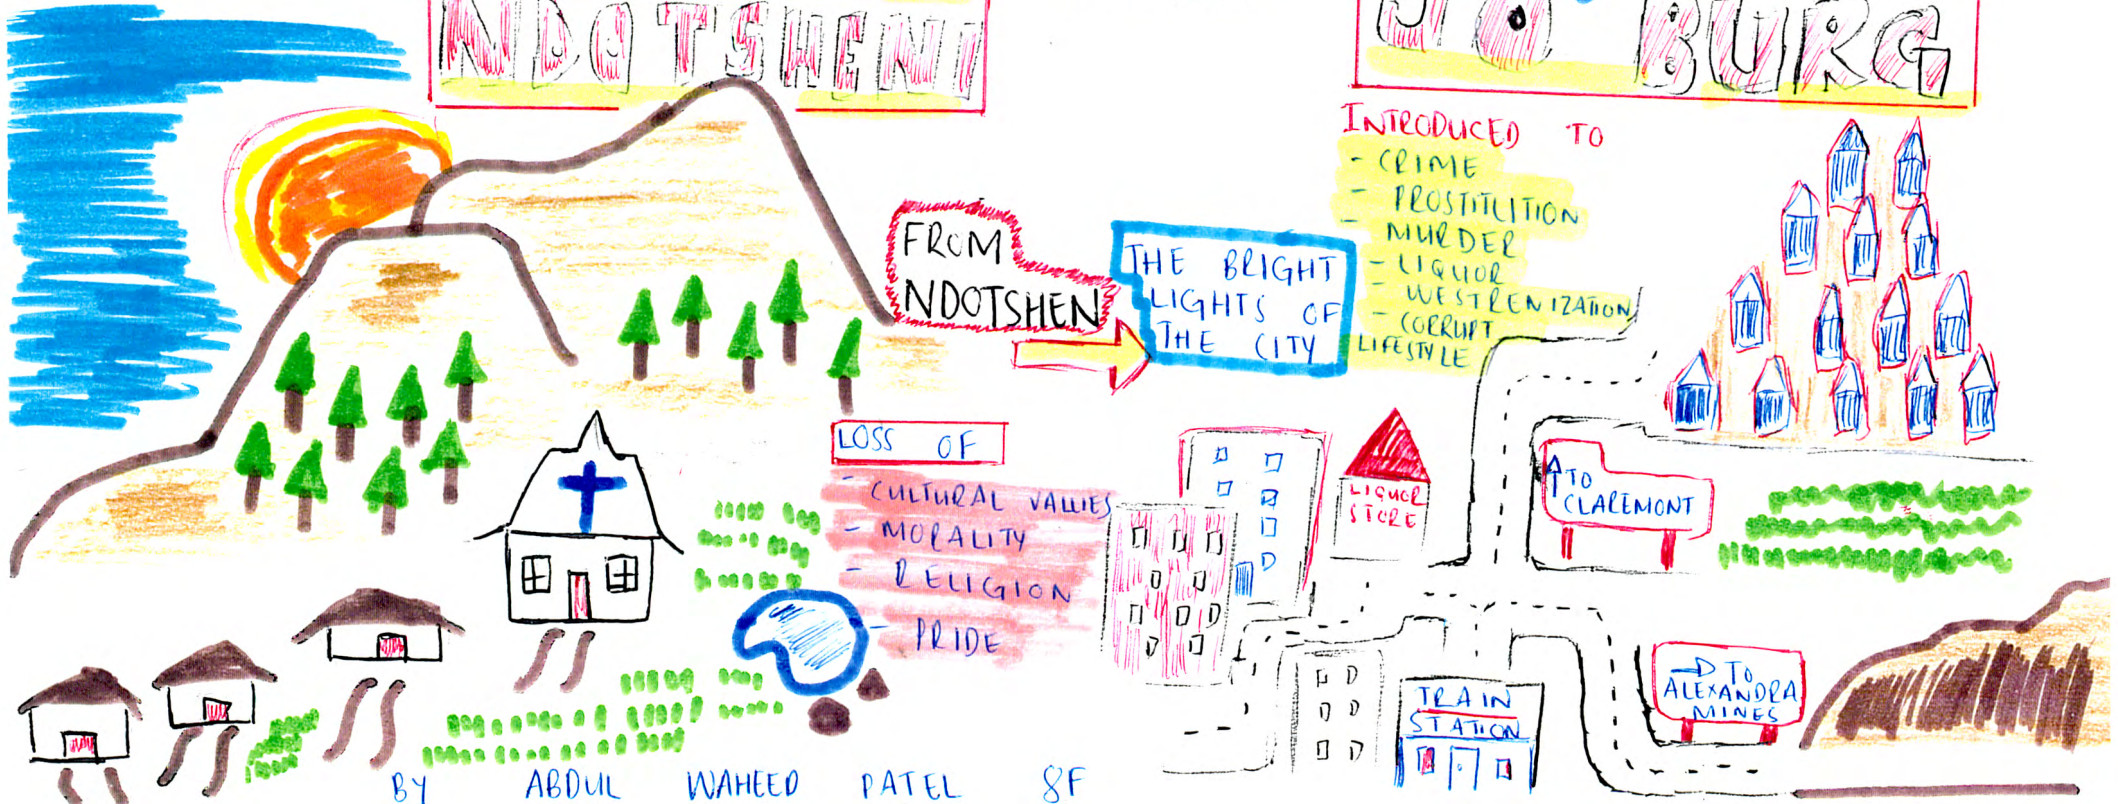 NDOTSHENI
JO'BURG
FROM
NDOTSHEN
THE BRIGHT
LIGHTS OF
THE CITY
INTRODUCED TO
- CRIME
- PROSTITUTION
- MURDER
- LIQUOR
- WESTRENIZATION
- CORRUPT
LIFESTYLE
LOSS OF
- CULTURAL VALUES
- MORALITY
- RELIGION
- PRIDE
LIQUOR
STORE
↑ TO
CLAREMONT
→ TO
ALEXANDRA
MINES
TRAIN
STATION
BY ABDUL WAHEED PATEL 8F